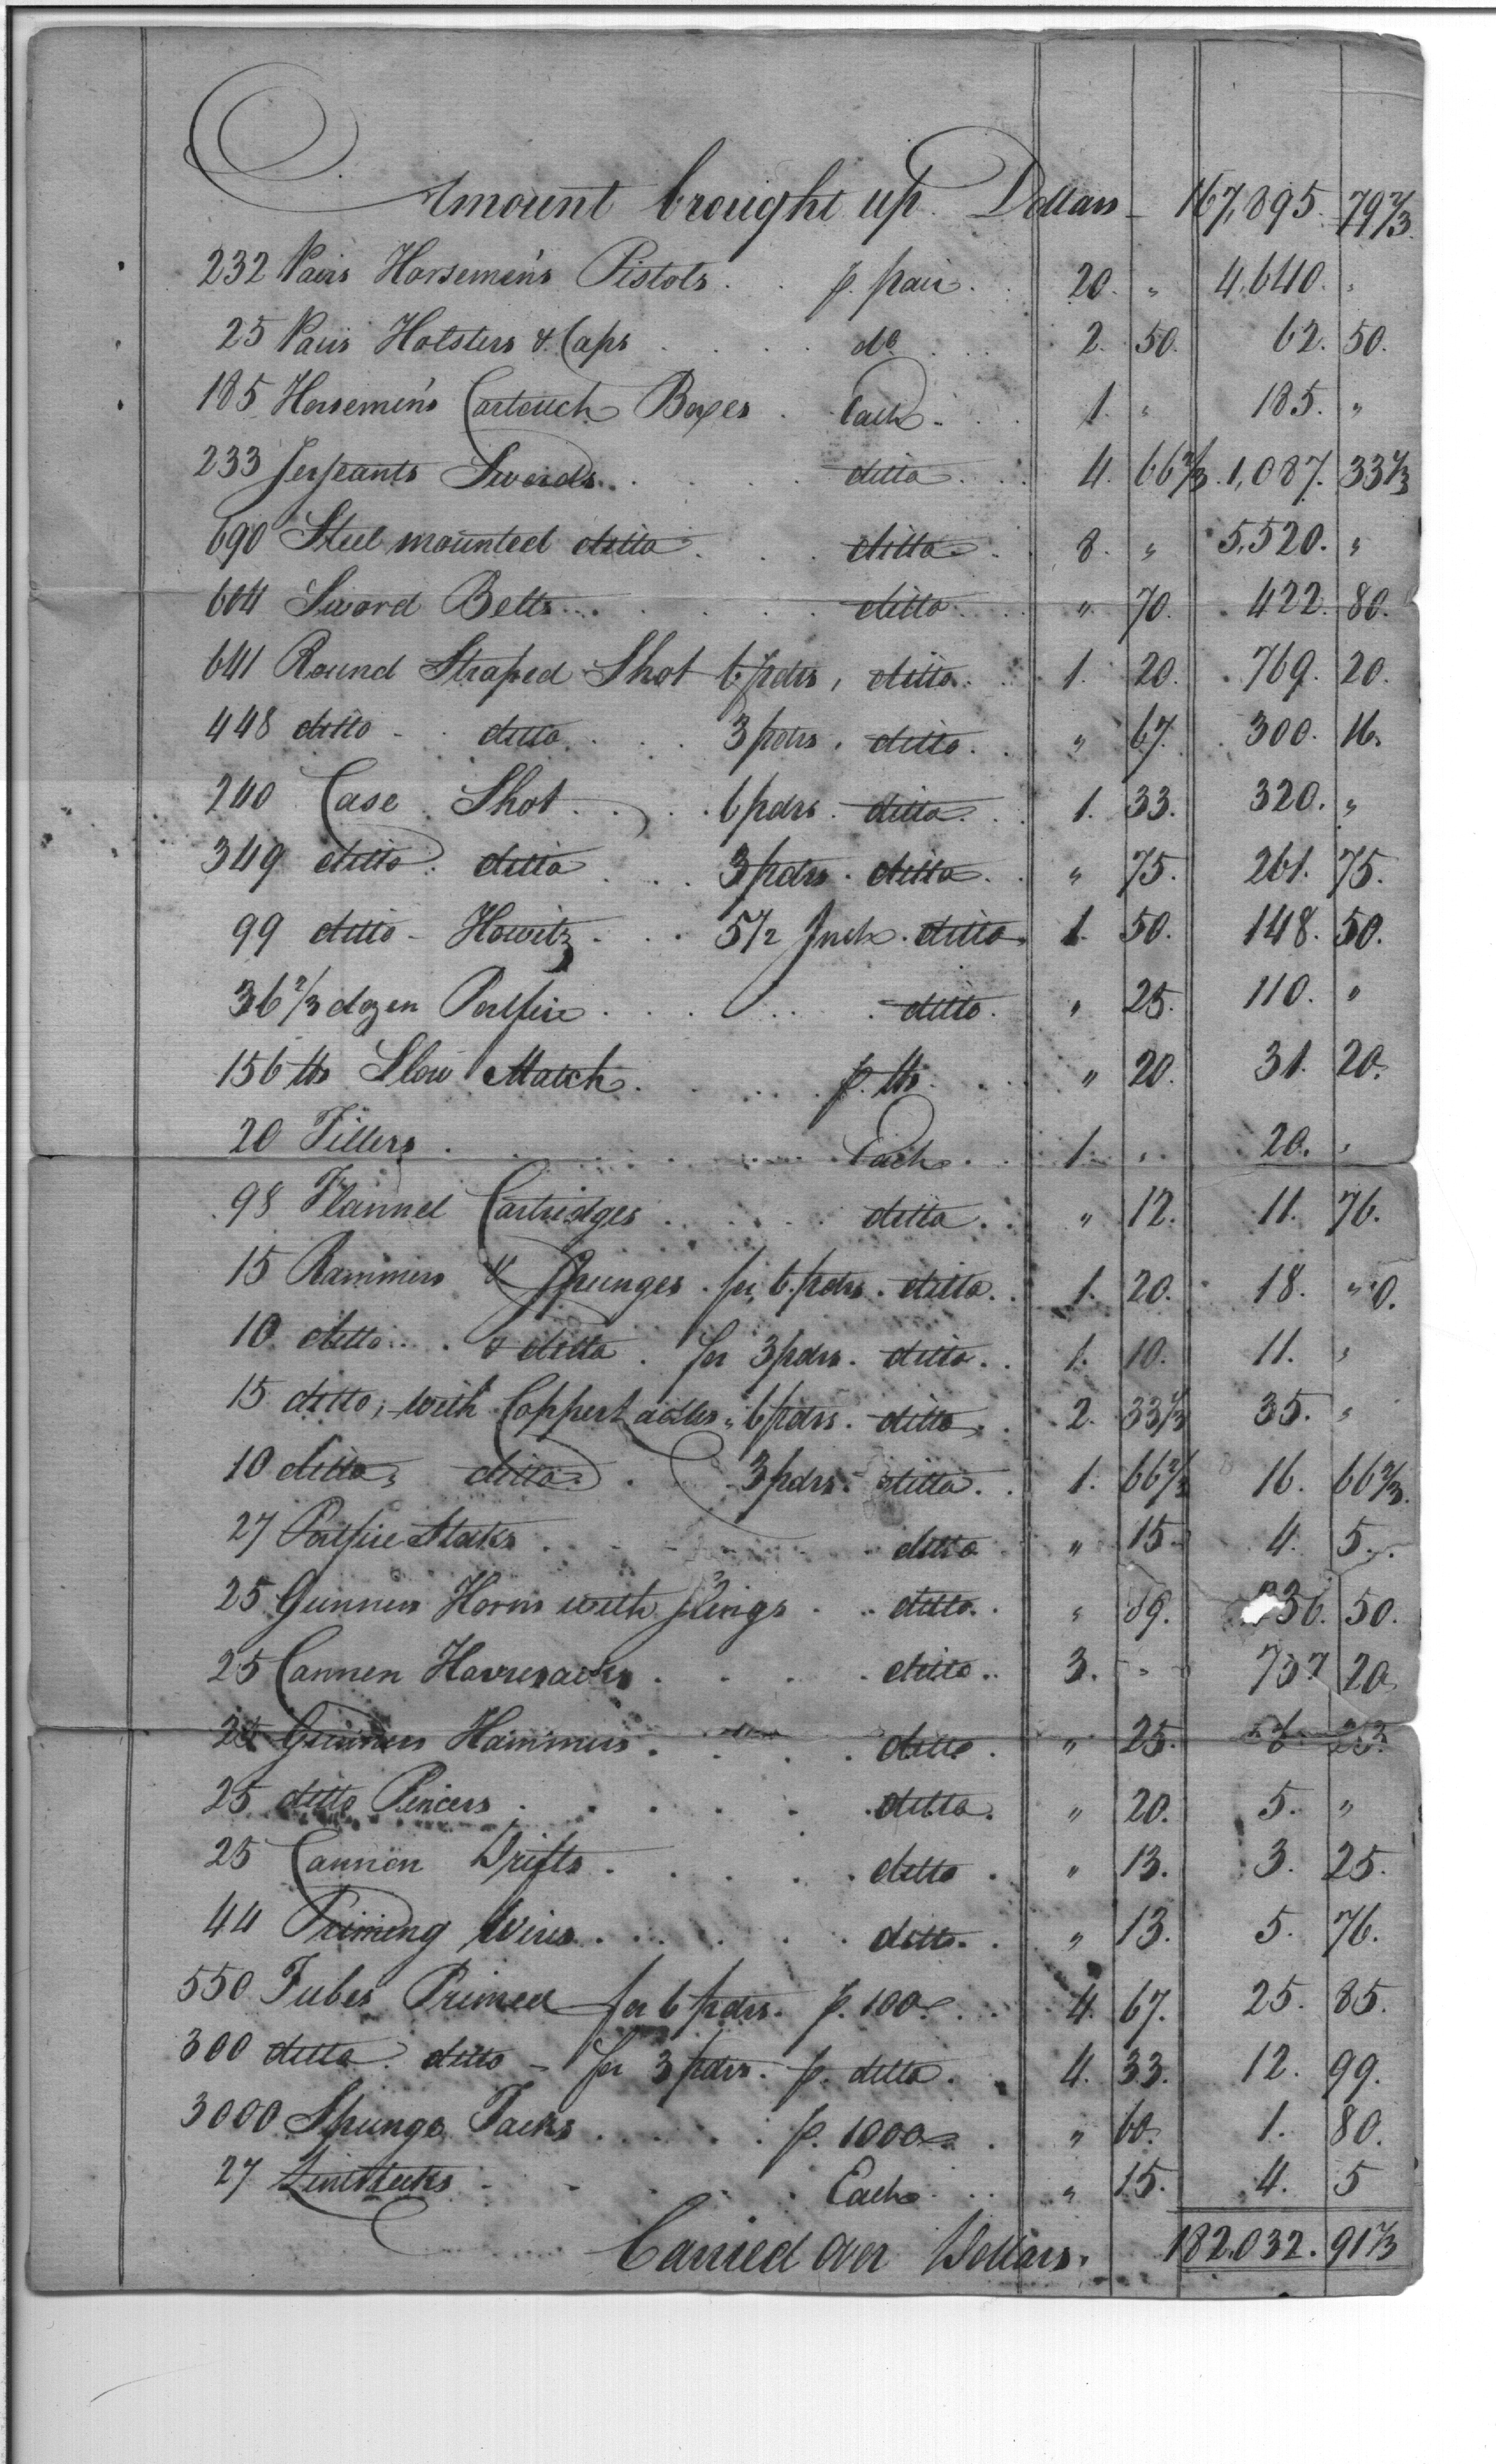 Amount brought up. Dollars - 167,895. 79 2/3
232 Pairs Horsemen's Pistols . . p. pair . . 20. " 4,640. "
25 Pairs Holsters & Caps . . . . do . . . 2. 50. 62. 50.
185 Horsemen's Cartouch Boxes . Each . . . 1. " 185. "
233 Serjeants Swords . . . . ditto . . . 4. 66 2/3 1,087. 33 1/3
690 Steel mounted ditto . . . ditto . . 8. " 5,520. "
604 Sword Belts . . . . . ditto . . . " 70. 422. 80.
641 Round Straped Shot 6 pdrs, ditto . . 1. 20. 769. 20.
448 ditto - . ditto . . . 3 pdrs. ditto . . " 67. 300. 16.
240 Case Shot . . . . 6 pdrs. ditto . . . 1. 33. 320. "
349 ditto . ditto . . . 3 pdrs. ditto . . " 75. 261. 75.
99 ditto - Howitz . . . 5 1/2 Inch. ditto . 1. 50. 148. 50.
36 2/3 dozen Portfire . . . . . . ditto . " 25. 110. "
156 lb Slow Match . . . . . p. lb. . . . " 20. 31. 20.
20 Fillers . . . . . . Each . . . 1. " 20. "
98 Flannel Cartridges . . . . . ditto . . . " 12. 11. 76.
15 Rammers & Spunges . for 6 pdrs. ditto . . 1. 20. 18. " 0.
10 ditto . . . & ditto . for 3 pdrs. ditto . . 1. 10. 11. "
15 ditto, with Copper Ladles " 6 pdrs. ditto . . 2. 33 1/3 35. "
10 ditto, ditto . . 3 pdrs. ditto . . 1. 66 2/3 16. 66 2/3.
27 Portfire Stocks . . . . . ditto . " 15. 4. 5.
25 Gunners Horns with Slings . . ditto . . " 89. 36. 50.
25 Cannon Haversacks . . . . ditto . . 3. - 20
25 Gunners Hammers . . . . ditto . " 25.
25 ditto Pincers . . . . . ditto . " 20. 5. "
25 Cannon Drifts . . . . . ditto . " 13. 3. 25.
44 Priming Wires . . . . . ditto . . " 13. 5. 76.
550 Tubes Primed for 6 pdrs. p. 100 . . . 4. 67. 25. 85.
300 ditto . ditto - for 3 pdrs. p. ditto . . 4. 33. 12. 99.
3000 Spunge Tacks . . . . . p. 1000 . " 60. 1. 80.
27 Linstocks . . . . . Each . . . " 15. 4. 5
Carried over Dollars. 182,032. 91 2/3